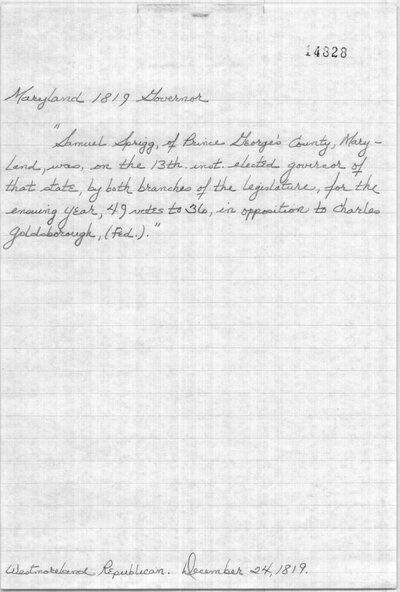 14828
Maryland 1819 Governor
"Samuel Sprigg, of Prince George's County, Mary-
land, was, on the 13th. inst. elected governor of
that state, by both branches of the legislature, for the
ensuing year, 49 votes to 36, in opposition to Charles
Goldsborough, (Fed.)."
Westmoreland Republican. December 24, 1819.